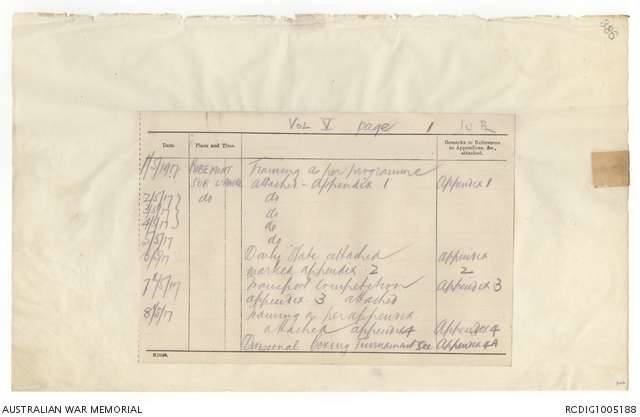 386
VOL V page 1
Date Place and Time. Remarks or References to Appendices, &c., attached.
1/5/1917 RIBEMONT Training as per programme
SUR L'ANCRE attached - appendix 1 Appendix 1
2/5/17 do do
3/5/17 do
4/5/17 do
5/5/17 do
6/5/17 Daily State attached appendix
marked appendix 2 2
7/5/17 Transport Competition Appendix 3
appendix 3 attached
8/5/17 Training as per appendix
attached appendix 4 Appendix 4
Divisional Boxing Tournament See Appendix 4A
AUSTRALIAN WAR MEMORIAL RCDIG1005188